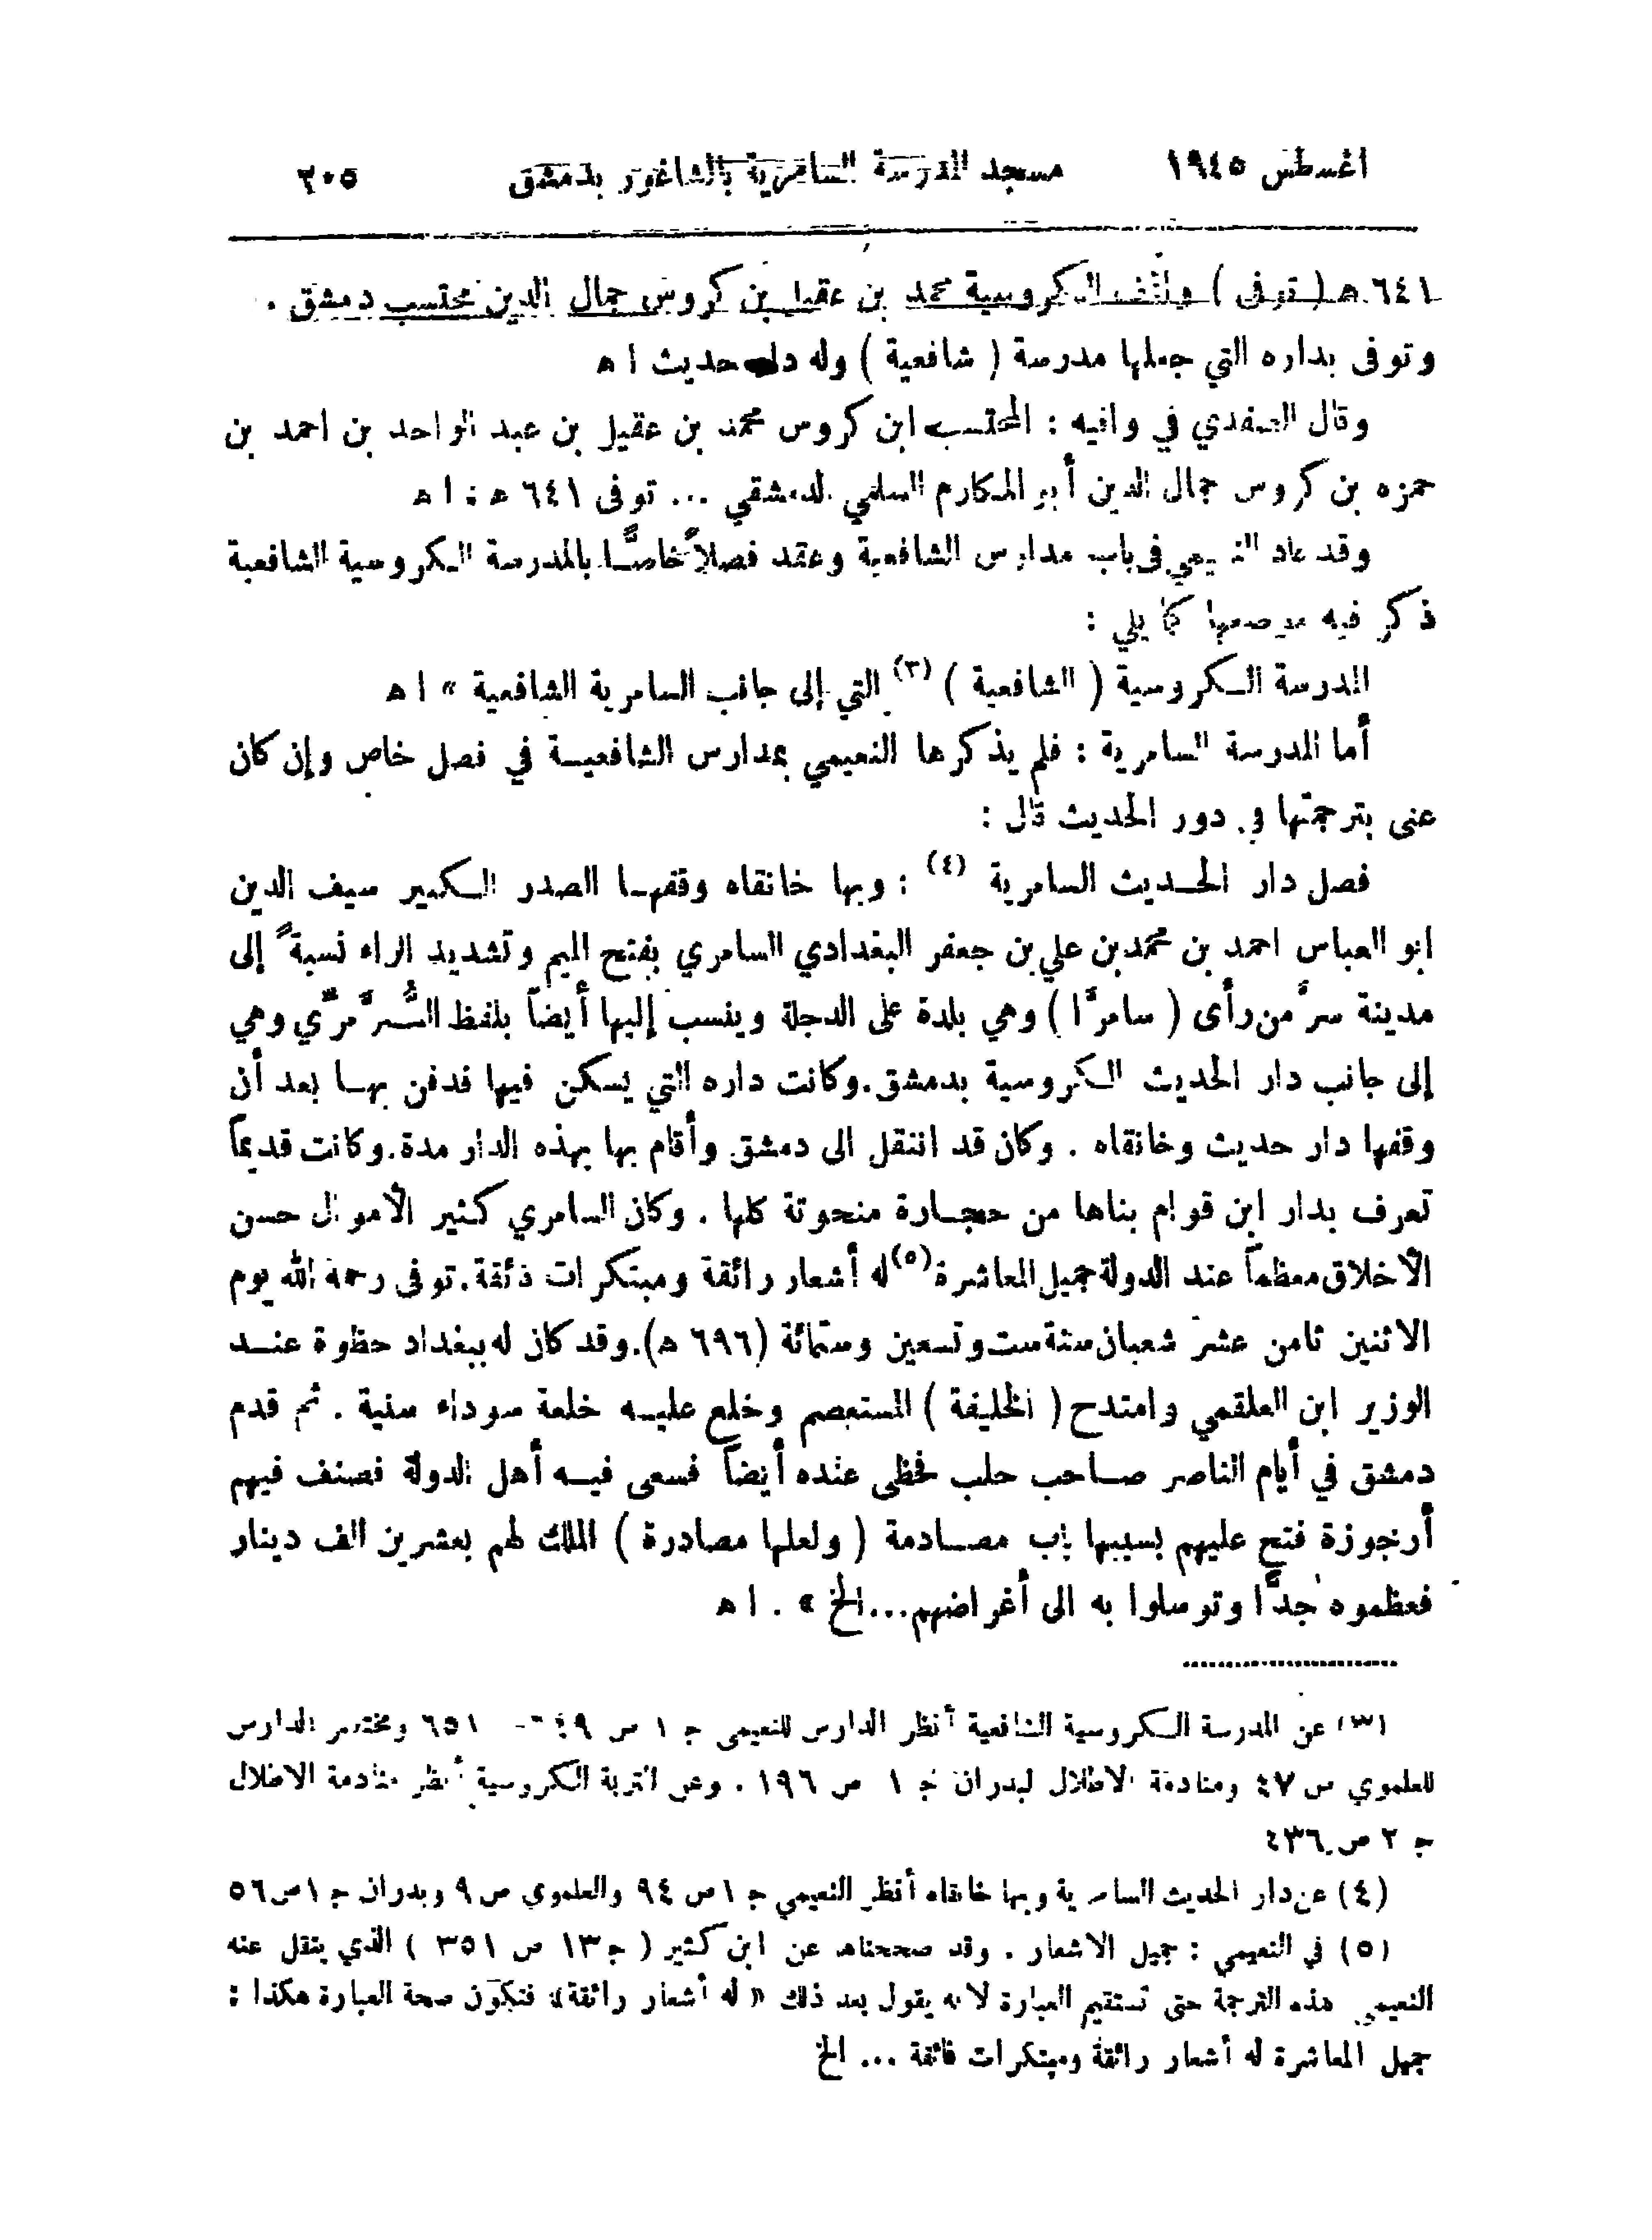 اغسطس ١٩٤٥ مسجد المدرسة السامرية بالشاغور بدمشق ٢٠٥
٦٤١ هـ ( توفى ) واقف الكروسية محمد بن عقيل بن كروس جمال الدين محتسب دمشق .
وتوفى بداره التي جعلها مدرسة ( شافعية ) وله دار حديث ا ه
وقال الصفدي في وافيه : المحتسب ابن كروس محمد بن عقيل بن عبد الواحد بن احمد بن
حمزه بن كروس جمال الدين أبو المكارم السلمي الدمشقي ... توفى ٦٤١ هـ : ا ه
وقد عاد النعيمي في باب مدارس الشافعية وعقد فصلاً خاصًّا بالمدرسة الكروسية الشافعية
ذكر فيه موضعها كما يلي :
المدرسة الكروسية ( الشافعية ) (٣) التي إلى جانب السامرية الشافعية » ا ه
أما المدرسة السامرية : فلم يذكرها النعيمي بمدارس الشافعيـة في فصل خاص وإن كان
عنى بترجمتها في دور الحديث قال :
فصل دار الحـديث السامرية (٤) : وبها خانقاه وقفهـا الصدر الكبير سيف الدين
ابو العباس احمد بن محمد بن علي بن جعفر البغدادي السامري بفتح الميم وتشديد الراء نسبةً إلى
مدينة سرَّ من رأى ( سامرَّا ) وهي بلدة على الدجلة وينسب إليها أيضاً بلفظ السُّرَّ مرِّي وهي
إلى جانب دار الحديث الكروسية بدمشق . وكانت داره التي يسكن فيها فدفن بهـا بعد أن
وقفها دار حديث وخانقاه . وكان قد انتقل الى دمشق وأقام بها بهذه الدار مدة . وكانت قديماً
تعرف بدار ابن قوام بناها من حجـارة منحوتة كلها . وكان السامري كثير الأموال حسن
الأخلاق معظماً عند الدولة جميل المعاشرة (٥) له أشعار رائقة ومبتكرات فائقة . توفى رحمة الله يوم
الاثنين ثامن عشر شعبان سنة ست وتسعين وستمائة (٦٩٦ هـ) . وقد كان له ببغداد حظوة عنـد
الوزير ابن العلقمي وامتدح ( الخليفة ) المستعصم وخلع عليـه خلعة سوداء سنية . ثم قدم
دمشق في أيام الناصر صـاحب حلب فحظى عنده أيضاً فسعى فيـه أهل الدولة فصنف فيهم
أرجوزة فتح عليهم بسببها باب مصـادمة ( ولعلها مصادرة ) الملك لهم بعشرين الف دينار
فعظموه جدًّا وتوسلوا به الى أغراضهم ... الخ » . ا ه
(٣) عن المدرسة الكروسية الشافعية أنظر الدارس للنعيمى ج ١ ص ٦٤٩ - ٦٥١ ومختصر الدارس
للعلموي ص ٤٧ ومنادمة الاطلال لبدران ج ١ ص ١٩٦ . وعن التربة الكروسية أنظر منادمة الاطلال
ج ٢ ص ٤٣٦
(٤) عن دار الحديث السامرية وبها خانقاه أنظر النعيمي ج ١ ص ٩٤ والعلموي ص ٩ وبدران ج ١ ص ٥٦
(٥) في النعيمي : جميل الاشعار . وقد صححناه عن ابن كثير ( ج ١٣ ص ٣٥١ ) الذي ينقل عنه
النعيمي هذه الترجمة حتى تستقيم العبارة لانه يقول بعد ذلك « له أشعار رائقة » فتكون صحة العبارة هكذا :
جميل المعاشرة له أشعار رائقة ومبتكرات فائقة ... الخ